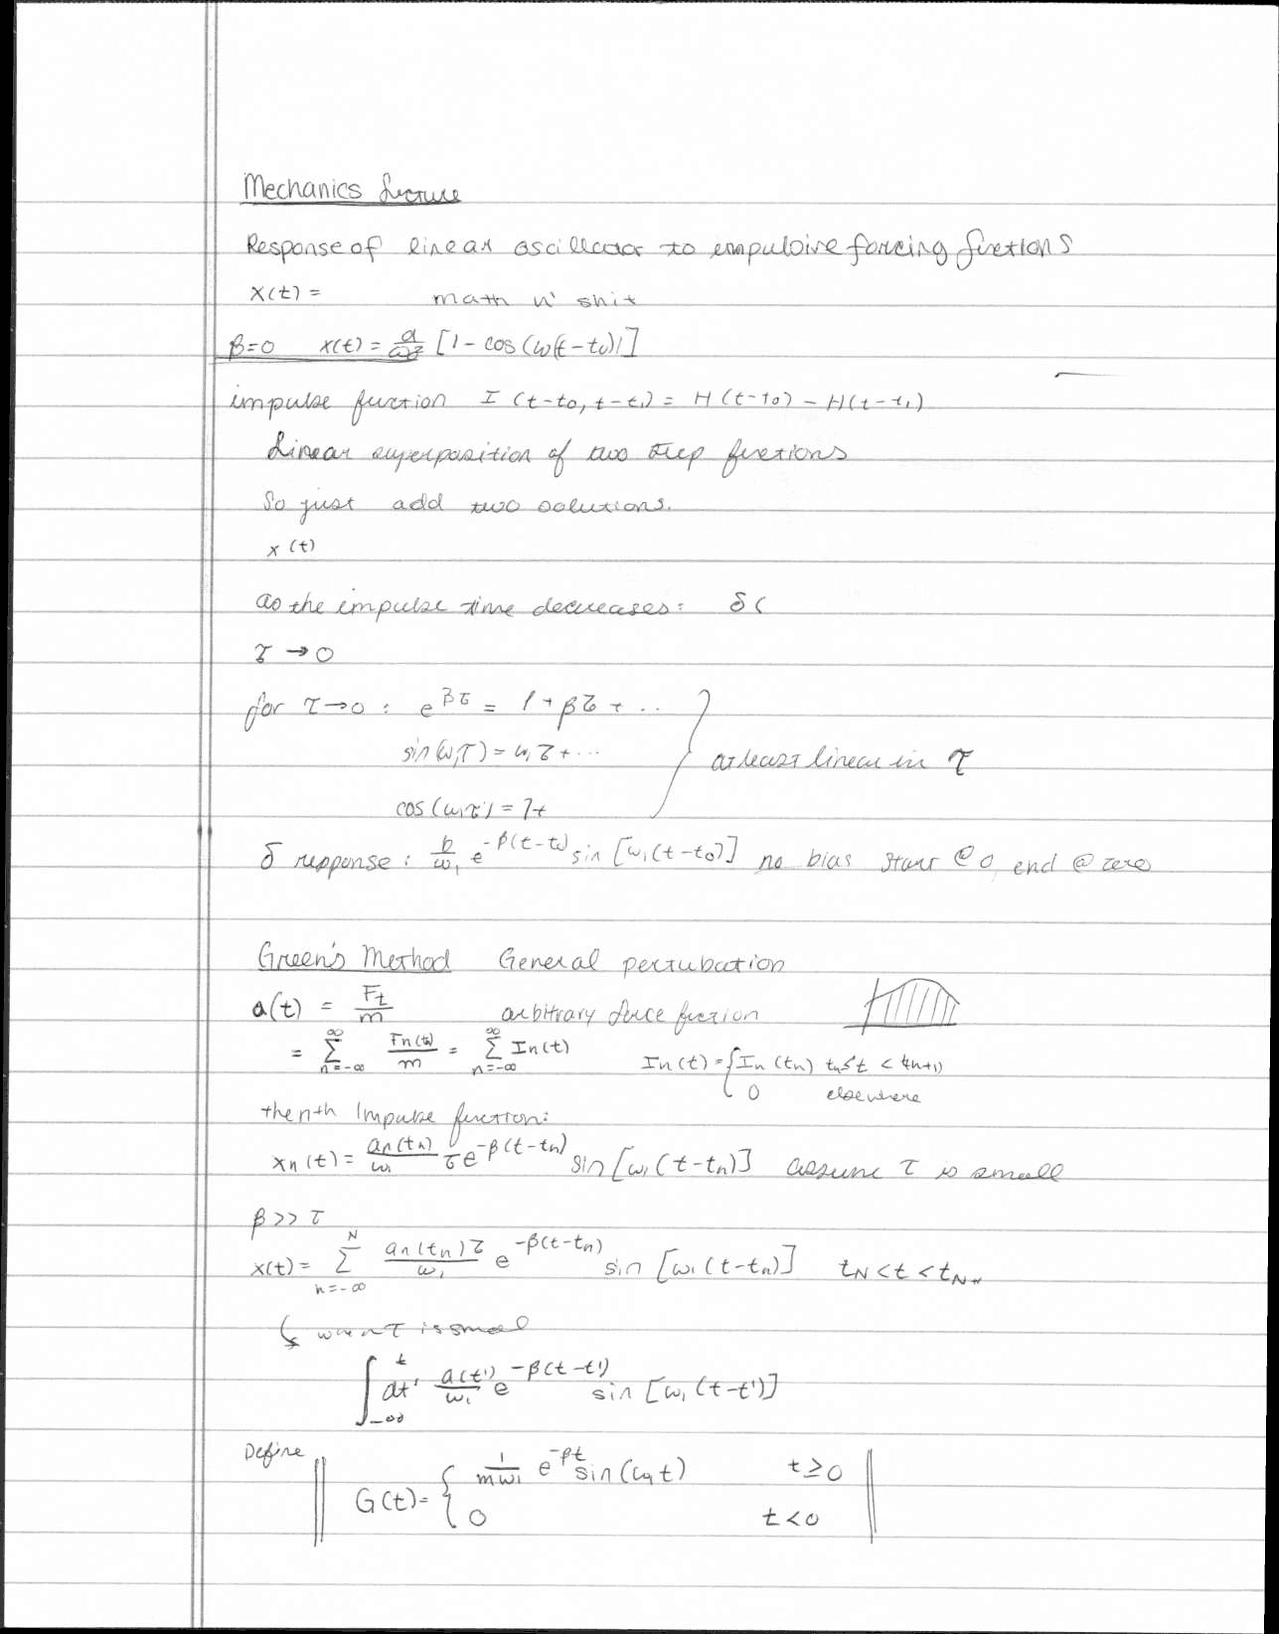 Mechanics Lecture
Response of linear oscillator to impulsive forcing functions
x(t) = math n' shit
β=0 x(t) = a/ω² [1 - cos(ω(t-t0))]
impulse function I (t-t0, t-t1) = H(t-t0) - H(t-t1)
Linear superposition of two step functions
So just add two solutions.
x(t)
as the impulse time decreases: δ(
τ → 0
for τ→0 : e^βτ = 1 + βτ + ..
sin(ω1τ) = ω1τ + ...
at least linear in τ
cos(ω1τ) = 1+
δ response : b/ω1 e^-β(t-t0) sin [ω1(t-t0)] no bias start @ 0, end @ zero
Green's Method General pertubation
a(t) = Ft/m arbitrary force function
= ∑_{n=-∞}^{∞} Fn(t)/m = ∑_{n=-∞}^{∞} In(t) In(t) = { In(tn) tn ≤ t < t(n+1)
0 elsewhere
the nth Impulse function:
xn(t) = an(tn)/ω1 τe^-β(t-tn) sin [ω1(t-tn)] assume τ is small
β >> τ
x(t) = ∑_{n=-∞}^{N} an(tn)τ/ω1 e^-β(t-tn) sin [ω1(t-tn)] tN < t < tN+
↳ when τ is small
∫_{-∞}^{t} dt' a(t')/ω1 e^-β(t-t') sin [ω1(t-t')]
Define
G(t) = { 1/mω1 e^-βt sin(ω1t) t ≥ 0
0 t < 0